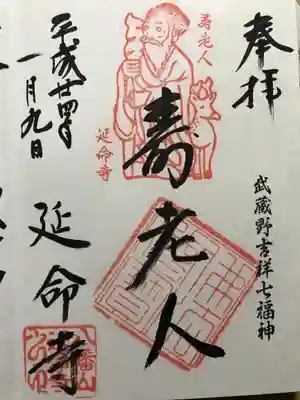 奉拝
武蔵野吉祥七福神
寿老人
壽老人
延命寺
平成廿四年
一月九日
延命寺